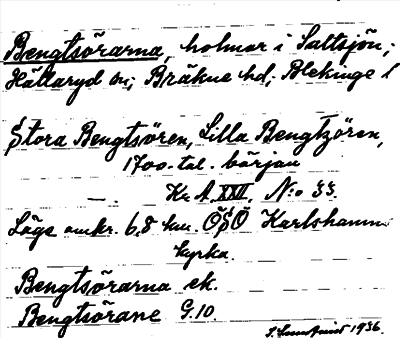 Bengtsörarna, holmar i Saltsjön;
Hällaryd sn; Bräkne hd; Blekinge l
Stora Bengtsören, Lilla Bengtzören,
1700-tal. början
— Kr. A. XXII, No 33.
Läge omkr. 6,8 km. ÖSÖ Karlshamns
kyrka.
Bengtsörarna ek.
Bengtsörane G.10.
1936